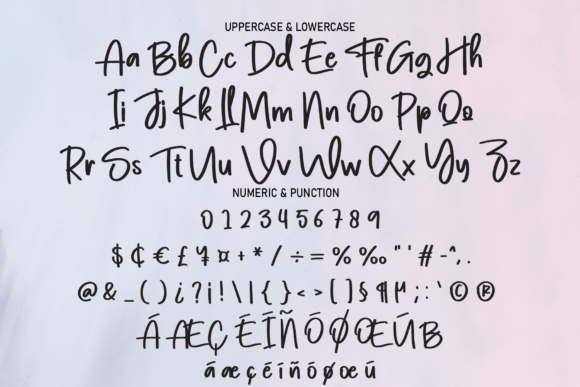 UPPERCASE & LOWERCASE
Aa Bb Cc Dd Ee Ff Gg Hh
Ii Jj Kk Ll Mm Nn Oo Pp Qq
Rr Ss Tt Uu Vv Ww Xx Yy Zz
NUMERIC & PUNCTION
0 1 2 3 4 5 6 7 8 9
$ ₵ € £ ¥ ¤ + * / ÷ = % ‰ " ' # - ^ , .
@ & _ ( ) ¿ ? ¡ ! \ | { } < > [ ] § ¶ µ ; : ` © ®
Á Æ Ç É Í Ñ Ó Ø Œ Ú ẞ
á æ ç é í ñ ó ø œ ú